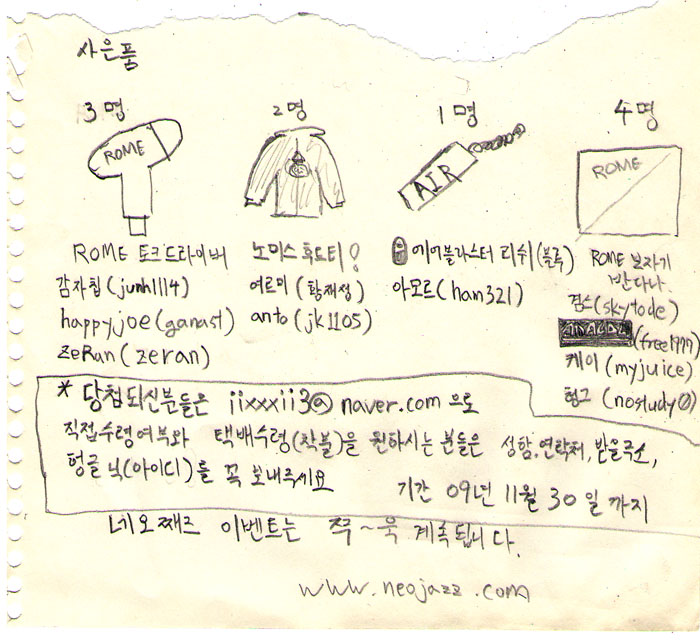 사은품
3명
2명
1명
4명
ROME
AIR
ROME
ROME 토크드라이버
노미스 후드티!
에어블라스터 리쉬(블루)
ROME 보자기
반다나
감자칩(junh1114)
여르미(황재정)
아모르(ham321)
겸스(skytode)
happyjoe(ganast)
anto(jk1105)
(free1777)
zeRan(zeran)
케이(myjuice)
헝그(nostudy0)
* 당첨되신분들은 iixxxii3@naver.com 으로
직접수령여부와 택배수령(착불)을 원하시는 분들은 성함,연락처,받을주소,
헝글닉(아이디)를 꼭 보내주세요
기간 09년 11월 30일 까지
네오째즈 이벤트는 쭉~욱 계속됩니다.
www.neojazz.com